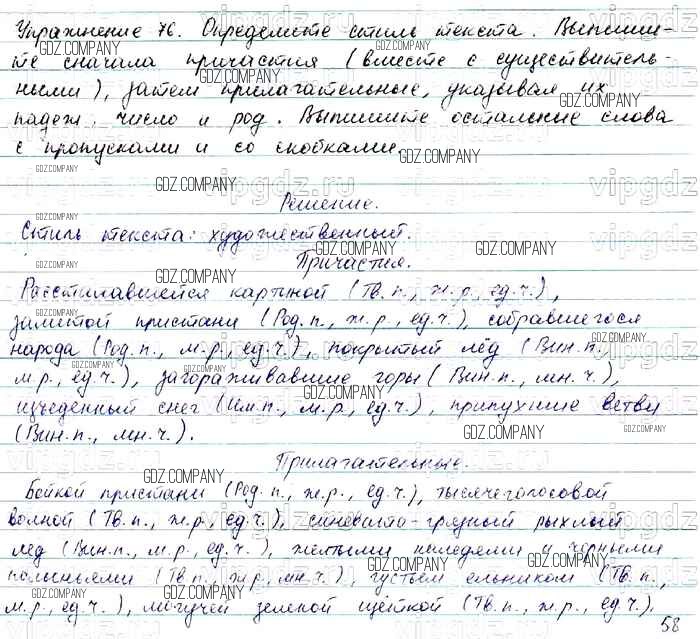 Упражнение 76. Определите стиль текста. Выпиши-
те сначала причастия (вместе с существитель-
ными), затем прилагательные, указывая их
падеж, число и род. Выпишите остальные слова
с пропусками и со скобками.
Решение.
Стиль текста: художественный.
Причастия.
Расстилавшейся картиной (Тв.п., ж.р., ед.ч.),
залитой пристани (Род.п., ж.р., ед.ч.), собравшегося
народа (Род.п., м.р., ед.ч.), покрытый лёд (Вин.п.,
м.р., ед.ч.), загораживавшие горы (Вин.п., мн.ч.),
изъеденный снег (Им.п., м.р., ед.ч.), припухшие ветви
(Вин.п., мн.ч.).
Прилагательные.
Бойкой пристани (Род.п., ж.р., ед.ч.), тысячеголосовой
волной (Тв.п., ж.р., ед.ч.), синевато-грязный рыхлый
лёд (Вин.п., м.р., ед.ч.), жёлтыми наледями и чёрными
полыньями (Тв.п., ж.р., мн.ч.), густым ельником (Тв.п.,
м.р., ед.ч.), могучей зелёной щёткой (Тв.п., ж.р., ед.ч.),
58